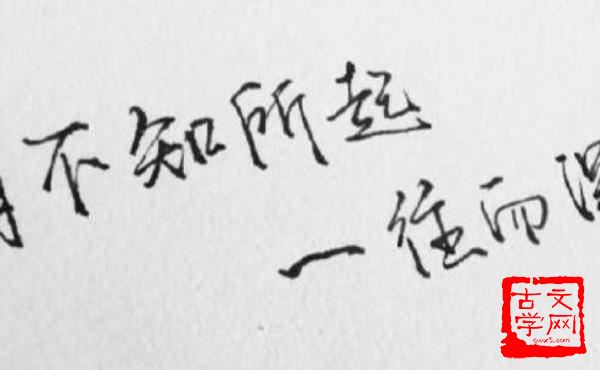 不知所起
一往而深
古文
学网
gwx5.com